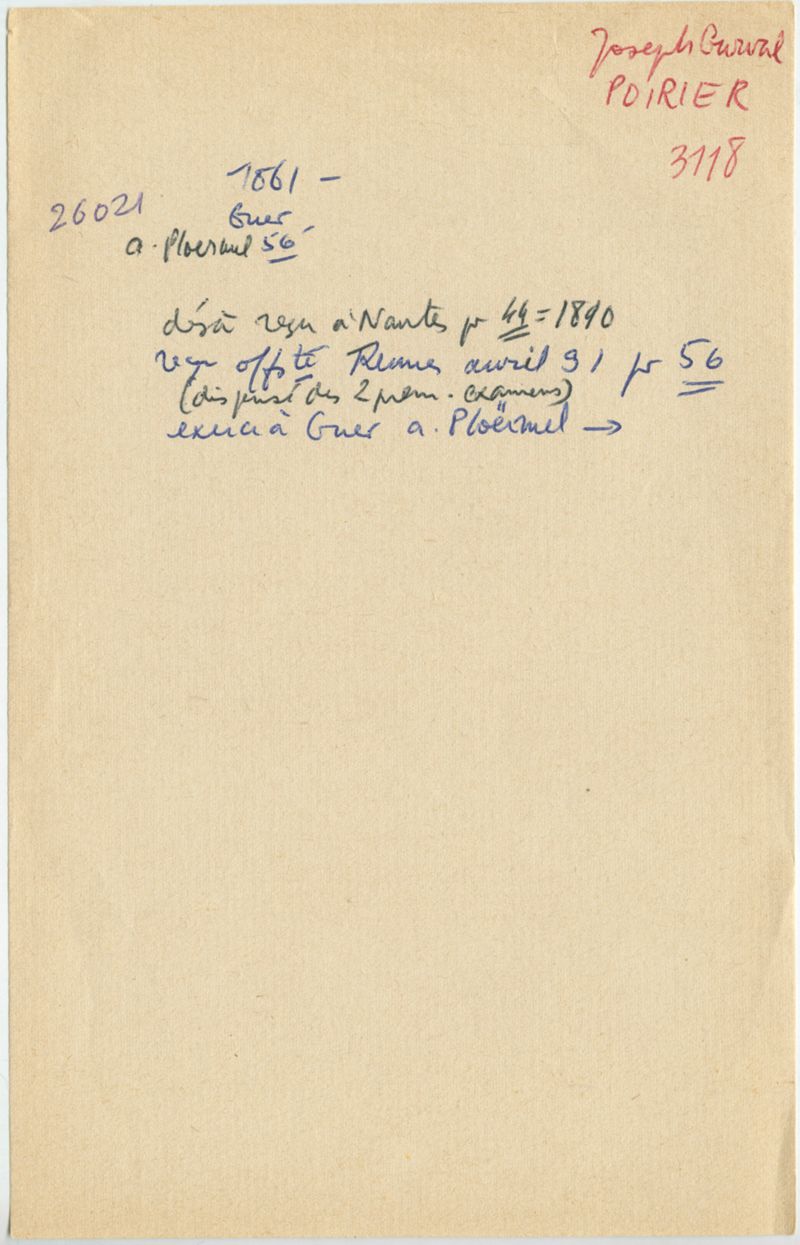 Joseph Gurval
POIRIER
3118
1861 –
26021
Guer
a. Ploërmel 56
déjà reçu à Nantes pr 44 = 1890
reçu offste Rennes avril 91 pr 56
(dispensé des 2 prem. examens)
exerce à Guer a. Ploërmel →